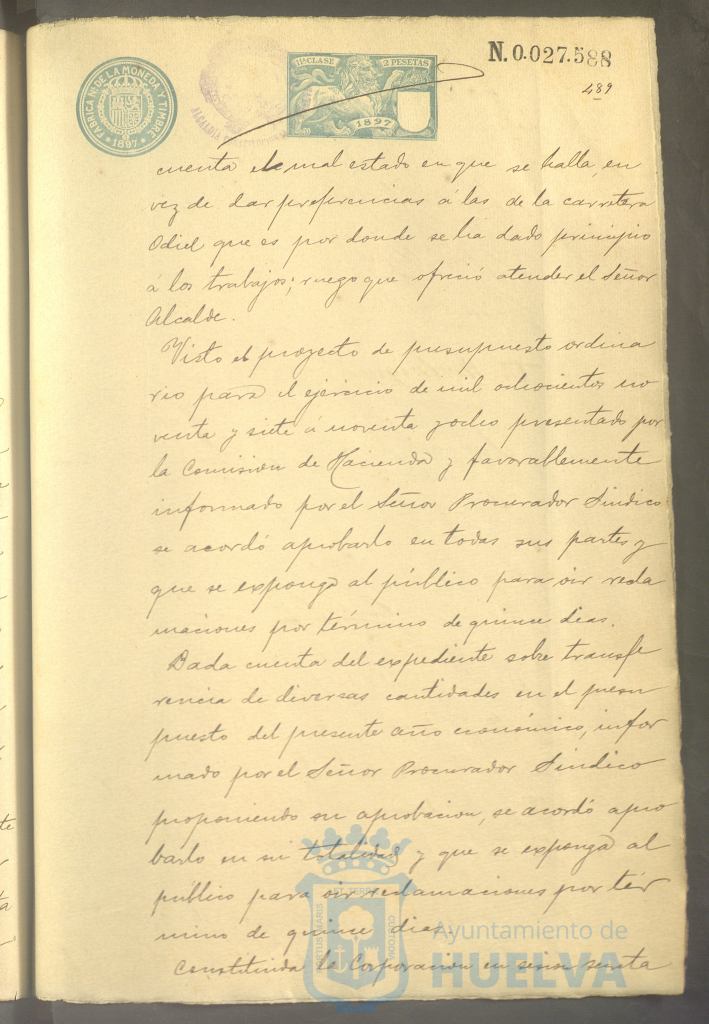 FABRICA NAL DE LA MONEDA Y TIMBRE
* 1897 *
11ª CLASE 2 PESETAS
1897
N.0.027.588
489
cuenta el mal estado en que se halla, en
vez de dar preferencias á las de la carretera
Odiel que es por donde se ha dado principio
á los trabajos; ruego que ofreció atender el Señor
Alcalde.
Visto el proyecto de presupuesto ordina
rio para el ejercicio de mil ochocientos no
venta y siete á noventa y ocho presentado por
la Comision de Hacienda y favorablemente
informado por el Señor Procurador Sindico
se acordó aprobarlo en todas sus partes y
que se exponga al público para oir recla
maciones por término de quince dias.
Dada cuenta del expediente sobre transfe
rencia de diversas cantidades en el presu
puesto del presente año económico, infor
mado por el Señor Procurador Sindico
proponiendo su aprobacion, se acordó apro
barlo en su totalidad y que se exponga al
público para oir reclamaciones por tér
mino de quince dias.
Constituida la Corporacion en sesion secreta
Ayuntamiento de
HUELVA